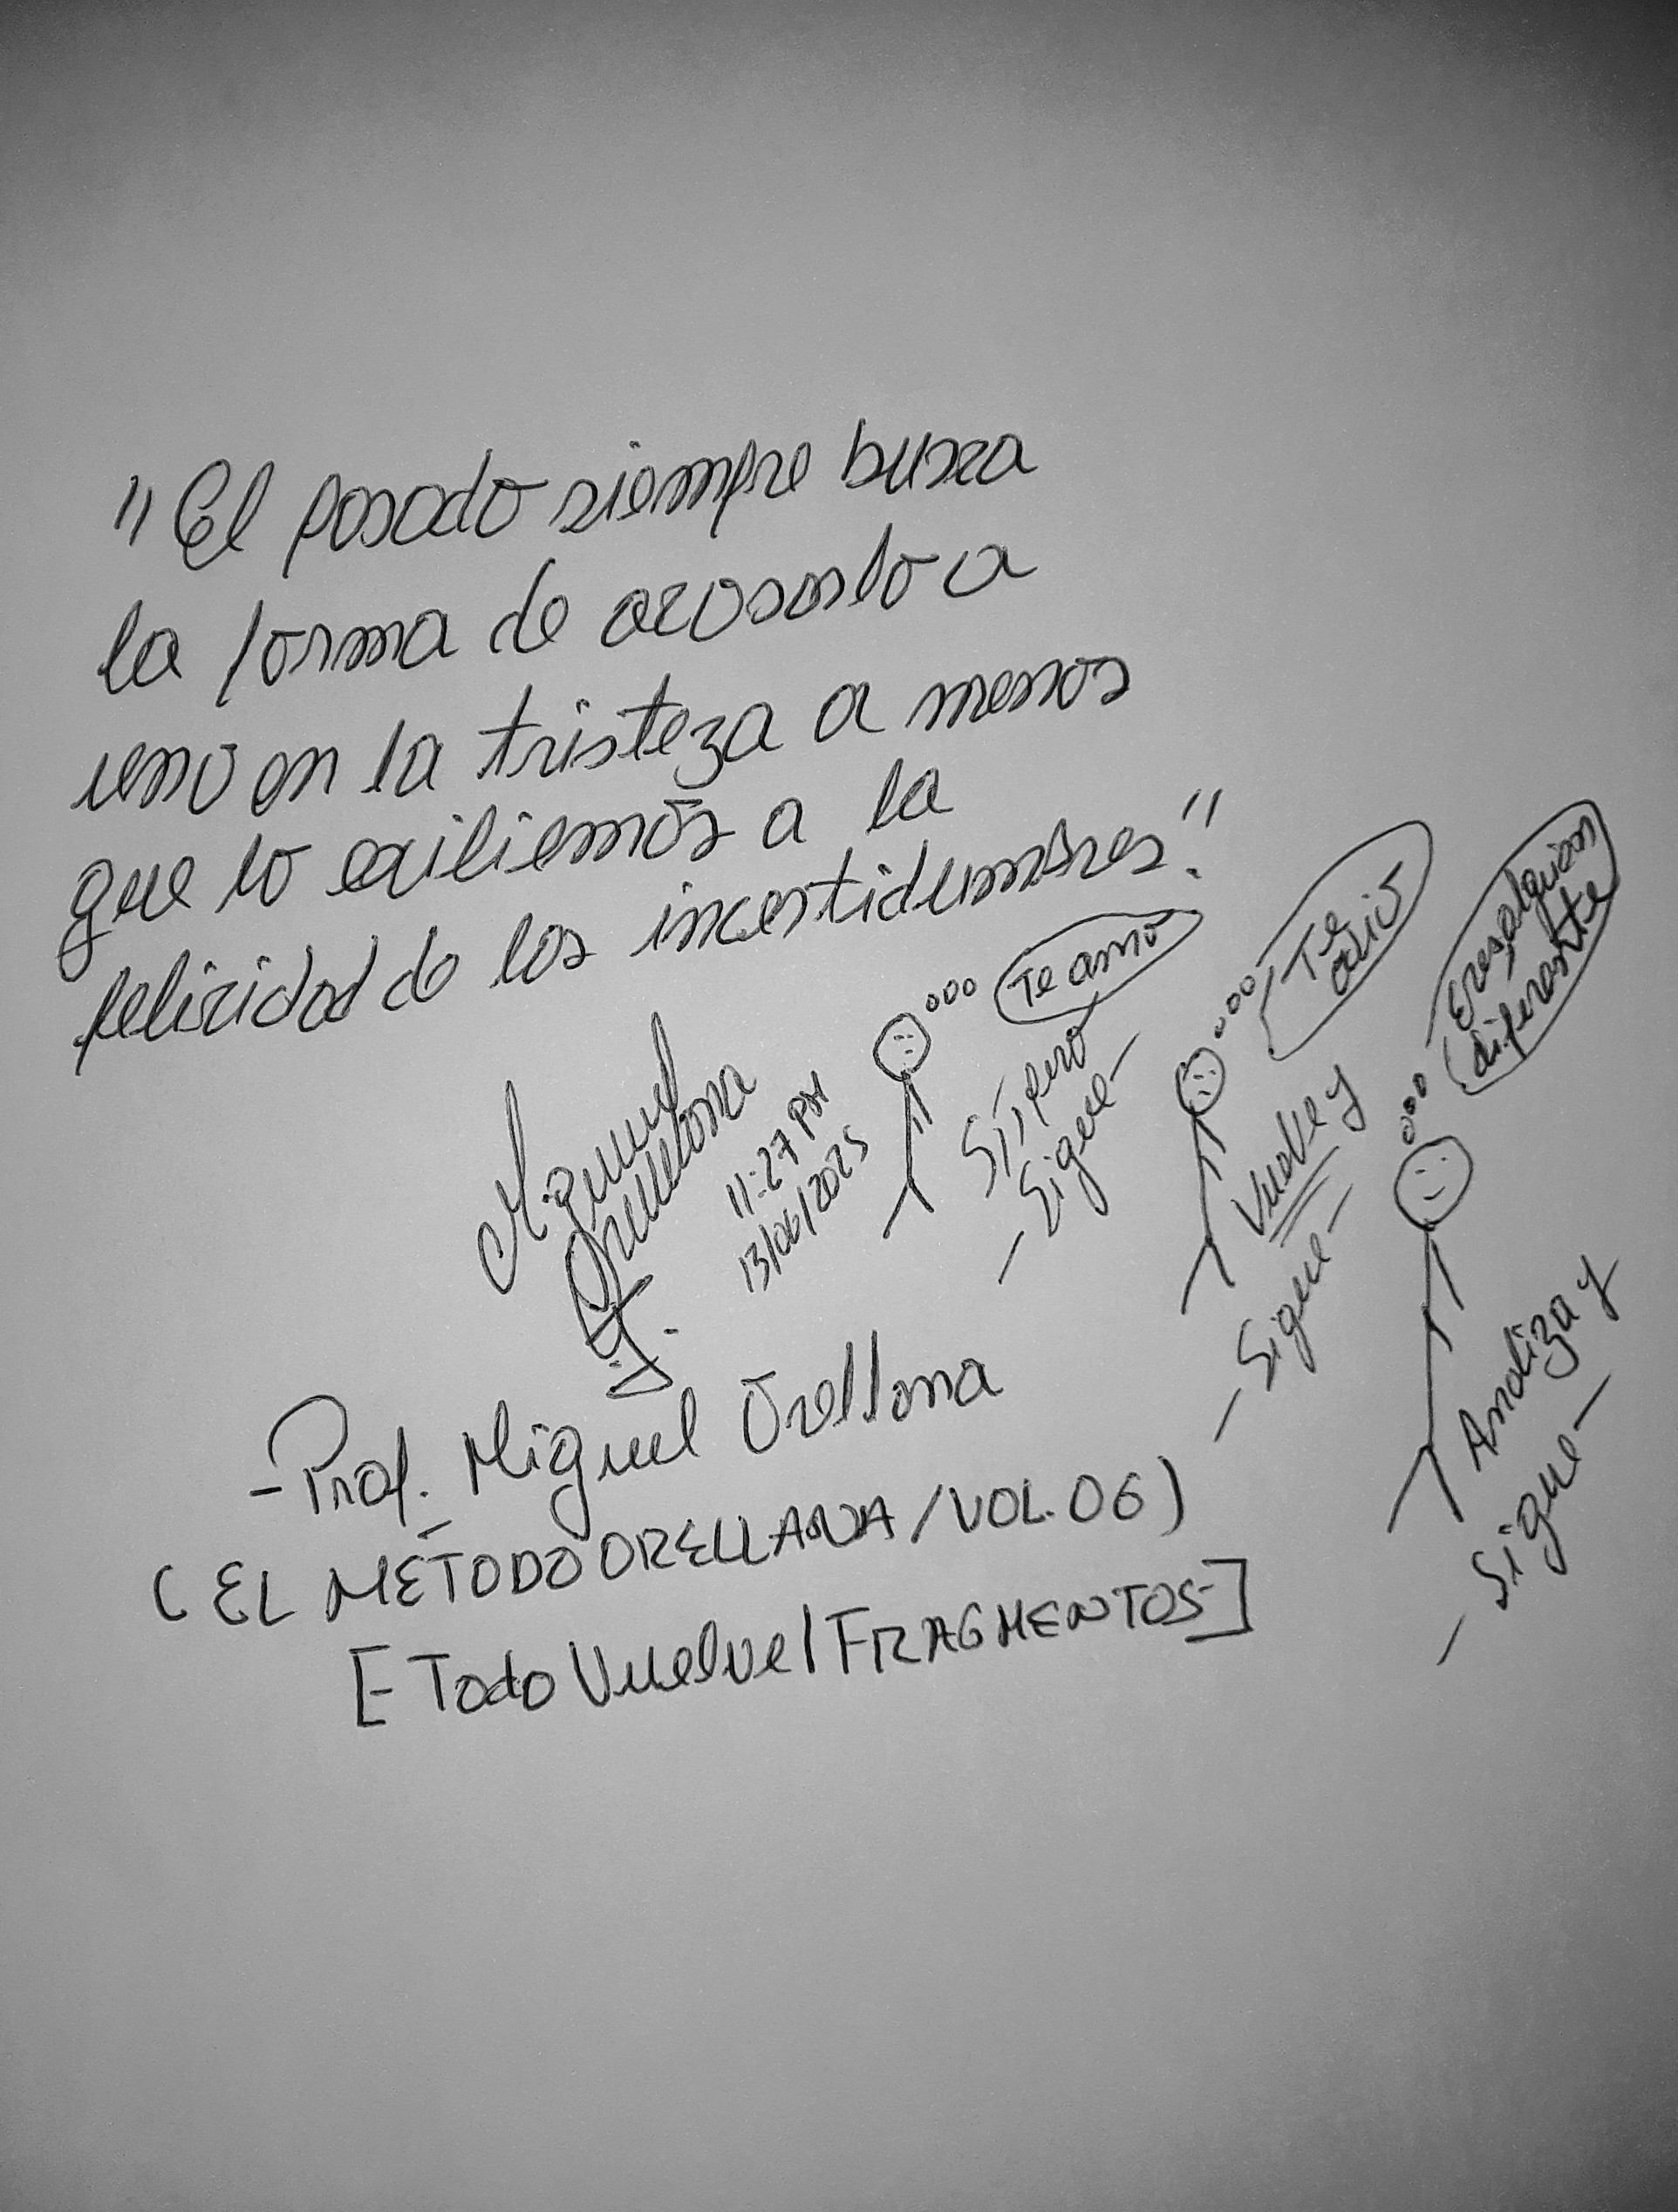 "El pasado siempre busca
la forma de acosarlo a
uno en la tristeza a menos
que lo exiliemos a la
felicidad de las incertidumbres."
Te amo
Te
odio
Eres alguien
diferente
Sí, pero
- Sigue -
Vuelve y
- Sigue -
Analiza y
- Sigue -
Miguel
Orellana
11:27 PM
13/06/2025
- Prof. Miguel Orellana
(EL MÉTODO ORELLANA / VOL. 06)
[- Todo Vuelve / FRAGMENTOS -]